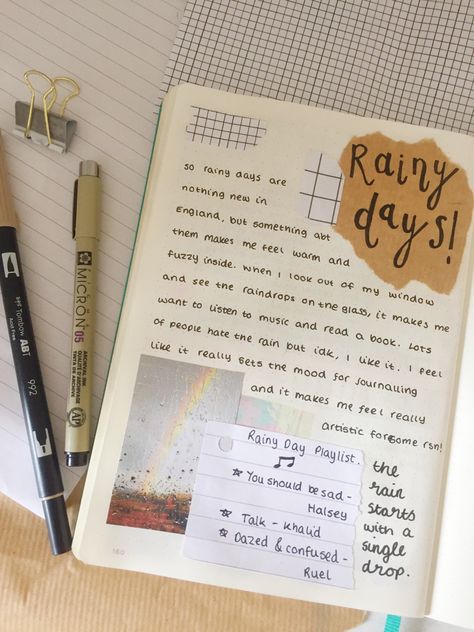 Rainy
days!
so rainy days are
nothing new in
England, but something abt
them makes me feel warm and
fuzzy inside. When I look out of my window
and see the raindrops on the glass, it makes me
want to listen to music and read a book. Lots
of people hate the rain but idk, I like it. I feel
like it really sets the mood for journalling
and it makes me feel really
artistic for some rsn!
Rainy Day Playlist.
You should be sad -
Halsey
Talk - Khalid
Dazed & confused -
Ruel
the
rain
starts
with a
single
drop.
160
MICRON 05
ARCHIVAL INK
AP
Tombow
ABT
992